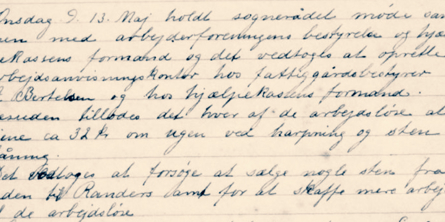 Onsdag d. 13. Maj holdt sognerådet møde sam
men med arbejderforeningens bestyrelse og hjæl
pekassens formand og det vedtoges at oprette
arbejdsanvisningskontor hos fattiggårdsbestyrer
Bertelsen og hos hjælpekassens formand.
tillodes det hver af de arbejdsløse at
tjene ca 32 Kr om ugen ved harpning og sten
slåning
Det vedtoges at forsøge at sælge nogle sten fra
den til Randers Amt for at skaffe mere arbej
de arbejdsløse